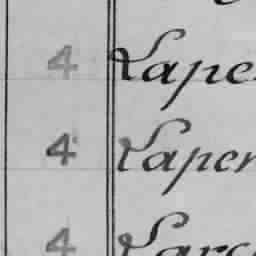 4 Lape
4 Lapen
4 Larc